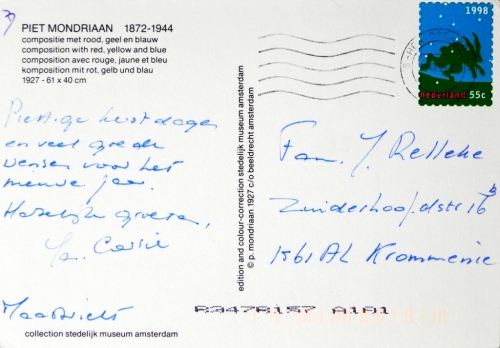 PIET MONDRIAAN 1872-1944
compositie met rood, geel en blauw
composition with red, yellow and blue
composition avec rouge, jaune et bleu
komposition mit rot, gelb und blau
1927 - 61 x 40 cm
Prettige kerstdagen
en veel goede
wensen voor het
nieuwe jaar.
Hartelijke groeten,
Maastricht
collection stedelijk museum amsterdam
edition and colour-correction stedelijk museum amsterdam
© p. mondriaan 1927 c/o beeldrecht amsterdam
1998
nederland 55c
Fam. J. Relleke
Zuiderhoofdstr 16 b
1561 AL Krommenie